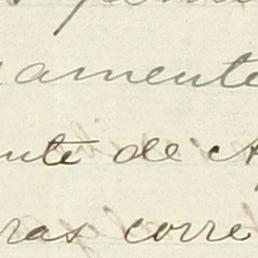 amente
nte de A
ras corre